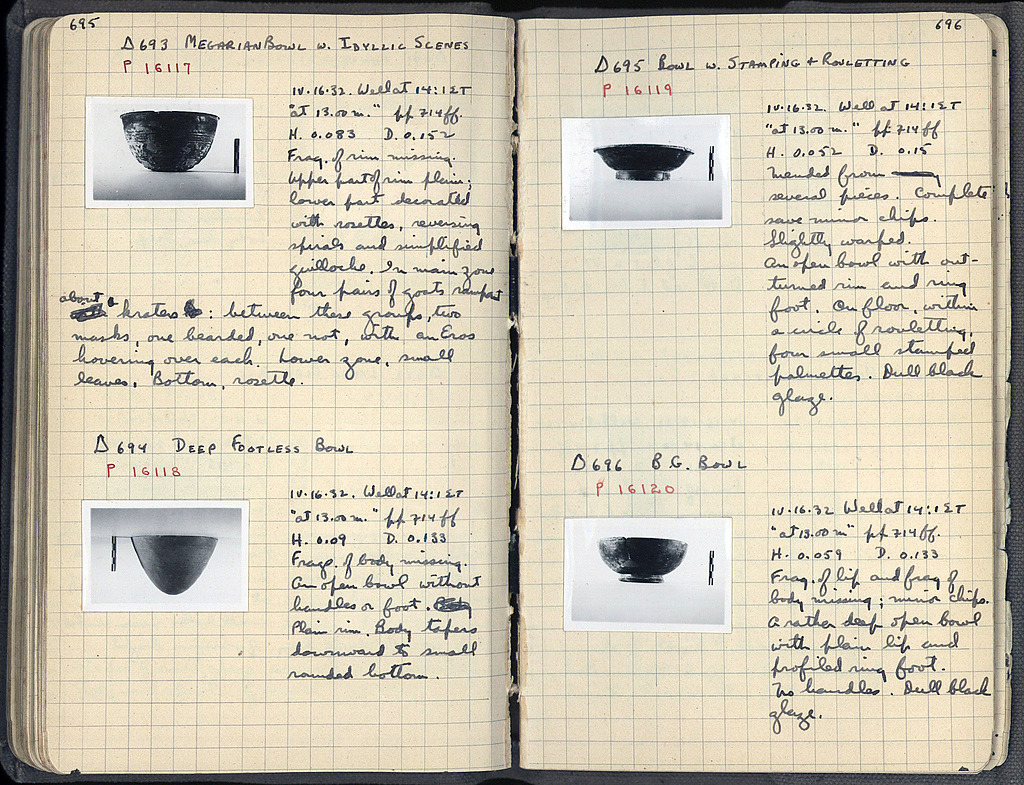 695
Δ693 MEGARIAN BOWL W. IDYLLIC SCENES
P 16117
IV.16.32. Well at 14:1 ΣΤ
"at 13.00 m." pp. 714 ff.
H. 0.083 D. 0.152
Frag. of rim missing.
Upper part of rim plain;
lower part decorated
with rosettes, reversing
spirals and simplified
guilloche. In main zone
four pairs of goats rampant
about a kraters : between these groups, two
masks, one bearded, one not, with an Eros
hovering over each. Lower zone, small
leaves. Bottom, rosette.
Δ694 DEEP FOOTLESS BOWL
P 16118
IV.16.32. Well at 14:1 ΣΤ
"at 13.00 m." pp. 714 ff
H. 0.09 D. 0.133
Frags. of body missing.
An open bowl without
handles or foot.
Plain rim. Body tapers
downward to small
rounded bottom.
696
Δ695 BOWL W. STAMPING + ROULETTING
P 16119
IV.16.32. Well at 14:1 ΣΤ
"at 13.00 m." pp. 714 ff
H. 0.052 D. 0.15
Mended from
several pieces. Complete
save minor chips.
Slightly warped.
An open bowl with out-
turned rim and ring
foot. On floor, within
a circle of rouletting,
four small stamped
palmettes. Dull black
glaze.
Δ696 B.G. BOWL
P 16120
IV.16.32 Well at 14:1 ΣΤ
"at 13.00 m" pp. 714 ff.
H. 0.059 D. 0.133
Frag. of lip and frag of
body missing; minor chips.
A rather deep open bowl
with plain lip and
profiled ring foot.
No handles. Dull black
glaze.